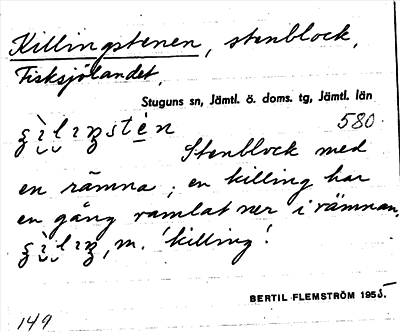 Killingstenen, stenblock,
Fisksjölandet.
Stuguns sn, Jämtl. ö. doms. tg, Jämtl. län
580
Stenblock med
en rämna; en killing har
en gång ramlat ner i rämnan.
m. 'killing'.
BERTIL FLEMSTRÖM 1955.
149